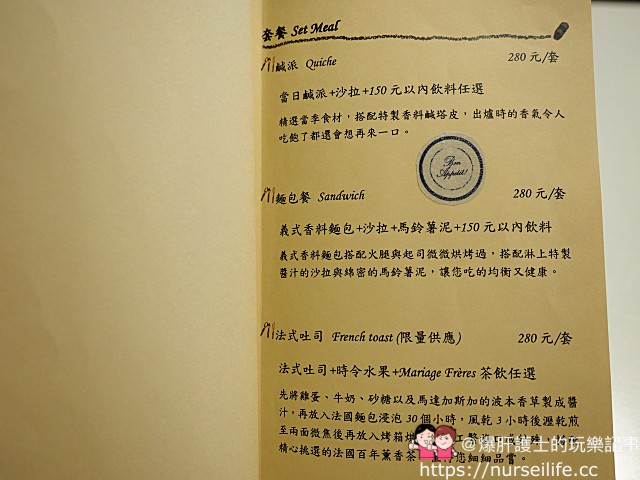 套餐 Set Meal
鹹派 Quiche 280 元/套
當日鹹派+沙拉+150 元以內飲料任選
精選當季食材，搭配特製香料鹹塔皮，出爐時的香氣令人
吃飽了都還會想再來一口。
Bon
Appetit!
麵包餐 Sandwich 280 元/套
義式香料麵包+沙拉+馬鈴薯泥+150 元以內飲料
義式香料麵包搭配火腿與起司微微烘烤過，搭配淋上特製
醬汁的沙拉與綿密的馬鈴薯泥，讓您吃的均衡又健康。
法式吐司 French toast (限量供應) 280 元/套
法式吐司+時令水果+Mariage Frères 茶飲任選
先將雞蛋、牛奶、砂糖以及馬達加斯加的波本香草製成醬
汁，再放入法國麵包浸泡 30 個小時，風乾 3 小時後瀝乾煎
至兩面微焦後再放入烤箱
精心挑選的法國百年薰香茶
您細細品嘗。
@爆肝護士的玩樂記事
https://nurseilife.cc